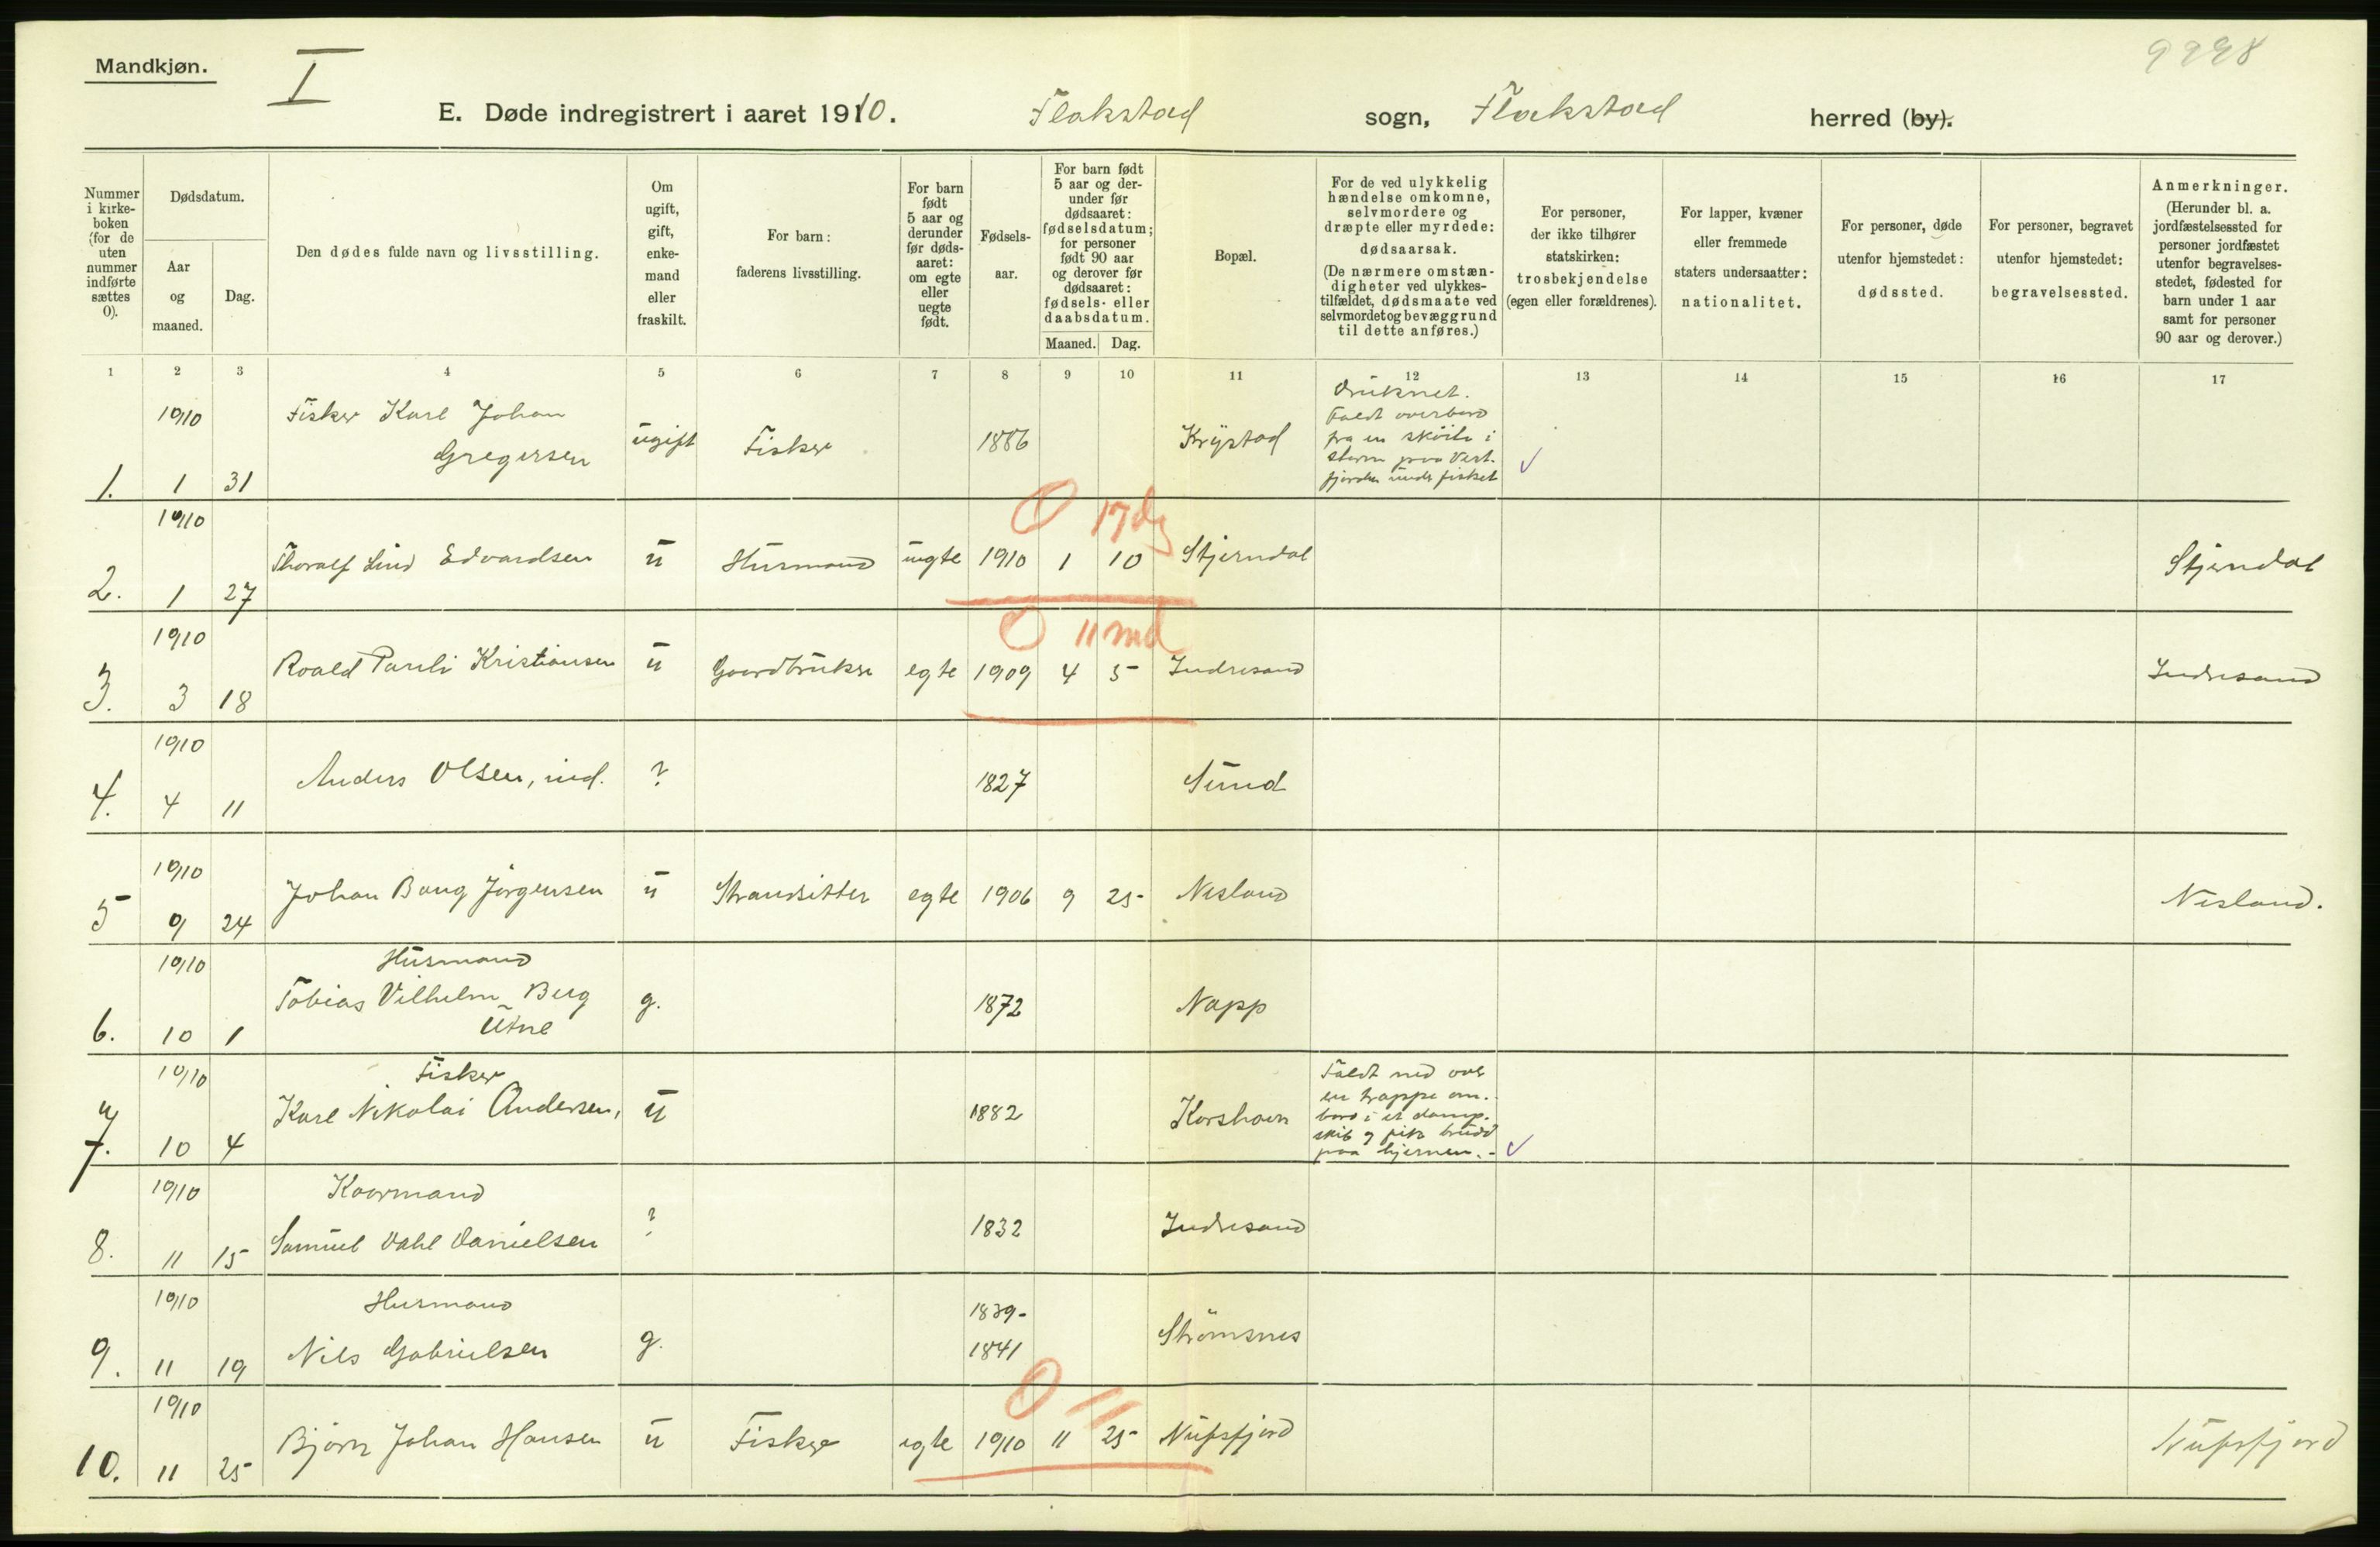 Mandkjøn.
I
9998
E. Døde indregistrert i aaret 1910. Flakstad sogn, Flakstad herred (by).
Nummer i kirke-boken (for de uten nummer indførte sættes 0).
Dødsdatum.
Aar og maaned.
Dag.
Den dødes fulde navn og livsstilling.
Om ugift, gift, enke-mand eller fraskilt.
For barn: faderens livsstilling.
For barn født 5 aar og derunder før døds-aaret: om egte eller uegte født.
Fødsels-aar.
For barn født 5 aar og der-under før dødsaaret: fødselsdatum; for personer født 90 aar og derover før dødsaaret: fødsels- eller daabsdatum.
Maaned. Dag.
Bopæl.
For de ved ulykkelig hændelse omkomne, selvmordere og dræpte eller myrdede: dødsaarsak. (De nærmere omstæn-digheter ved ulykkes-tilfældet, dødsmaate ved selvmordet og bevæggrund til dette anføres.)
For personer, der ikke tilhører statskirken: trosbekjendelse (egen eller forældrenes).
For lapper, kvæner eller fremmede staters undersaatter: nationalitet.
For personer, døde utenfor hjemstedet: dødssted.
For personer, begravet utenfor hjemstedet: begravelsessted.
Anmerkninger. (Herunder bl. a. jordfæstelsessted for personer jordfæstet utenfor begravelses-stedet, fødested for barn under 1 aar samt for personer 90 aar og derover.)
1 2 3 4 5 6 7 8 9 10 11 12 13 14 15 16 17
1. 1910 1 31 Fisker Karl Johan Gregersen ugift Fisker 1886 Krystad
Druknet.
Faldt overbord
fra en skøite i
storm paa Vest-
fjorden under fisket
0 17 dg
2. 1910 1 27 Thoralf Lind Edvardsen u Husmand uegte 1910 1 10 Stjerndal Stjerndal
0 11 md
3. 1910 3 18 Roald Pareli Kristiansen u Gaardbruker egte 1909 4 5 Indresand Indresand
4. 1910 4 11 Anders Olsen, ind. ? 1827 Sund
5 1910 9 24 Johan Bang Jørgensen u Strandsitter egte 1906 9 25 Nesland Nesland.
6. 1910 10 1 Husmand Tobias Vilhelm Berg Utne g. 1872 Napp
7. 1910 10 4 Fisker Karl Nikolai Andersen, u 1882 Korshavn
Faldt ned over
en trappe om-
bord i et damp-
skib og fik brudd
paa hjernen.-
8. 1910 11 15 Kaarmand Samuel Dahl Danielsen ? 1832 Indresand
9. 1910 11 19 Husmand Nils Gabrielsen g. 1839-1841 Strømsnes
0 11
10. 1910 11 25 Bjørn Johan Hansen u Fisker egte 1910 11 25 Nufsfjord Nufsfjord